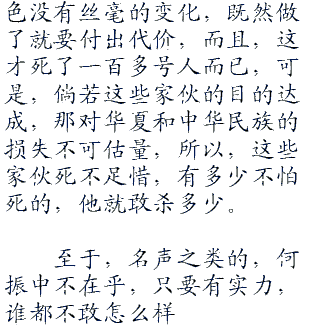 色没有丝毫的变化，既然做
了就要付出代价，而且，这
才死了一百多号人而已，可
是，倘若这些家伙的目的达
成，那对华夏和中华民族的
损失不可估量，所以，这些
家伙死不足惜，有多少不怕
死的，他就敢杀多少。
至于，名声之类的，何
振中不在乎，只要有实力，
谁都不敢怎么样